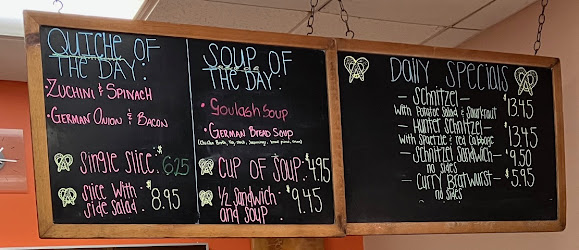 QUICHE OF
THE DAY!
ZUCHINI & SPINACH
• GERMAN ONION & BACON
SINGLE SLICE: $6.25
SLICE WITH
SIDE SALAD: $8.95
SOUP OF
THE DAY!
• Goulash Soup
• GERMAN BREAD SOUP
CUP OF SOUP: $4.95
1/2 SANDWICH
AND SOUP: $9.45
Daily Specials
— Schnitzel — $13.45
with Potatoe Salad & Sauerkraut
— Hunter Schnitzel — $13.45
with Spaetzle & red Cabbage
— Schnitzel Sandwich — $9.50
no sides
— Curry Bratwurst — $5.95
no sides